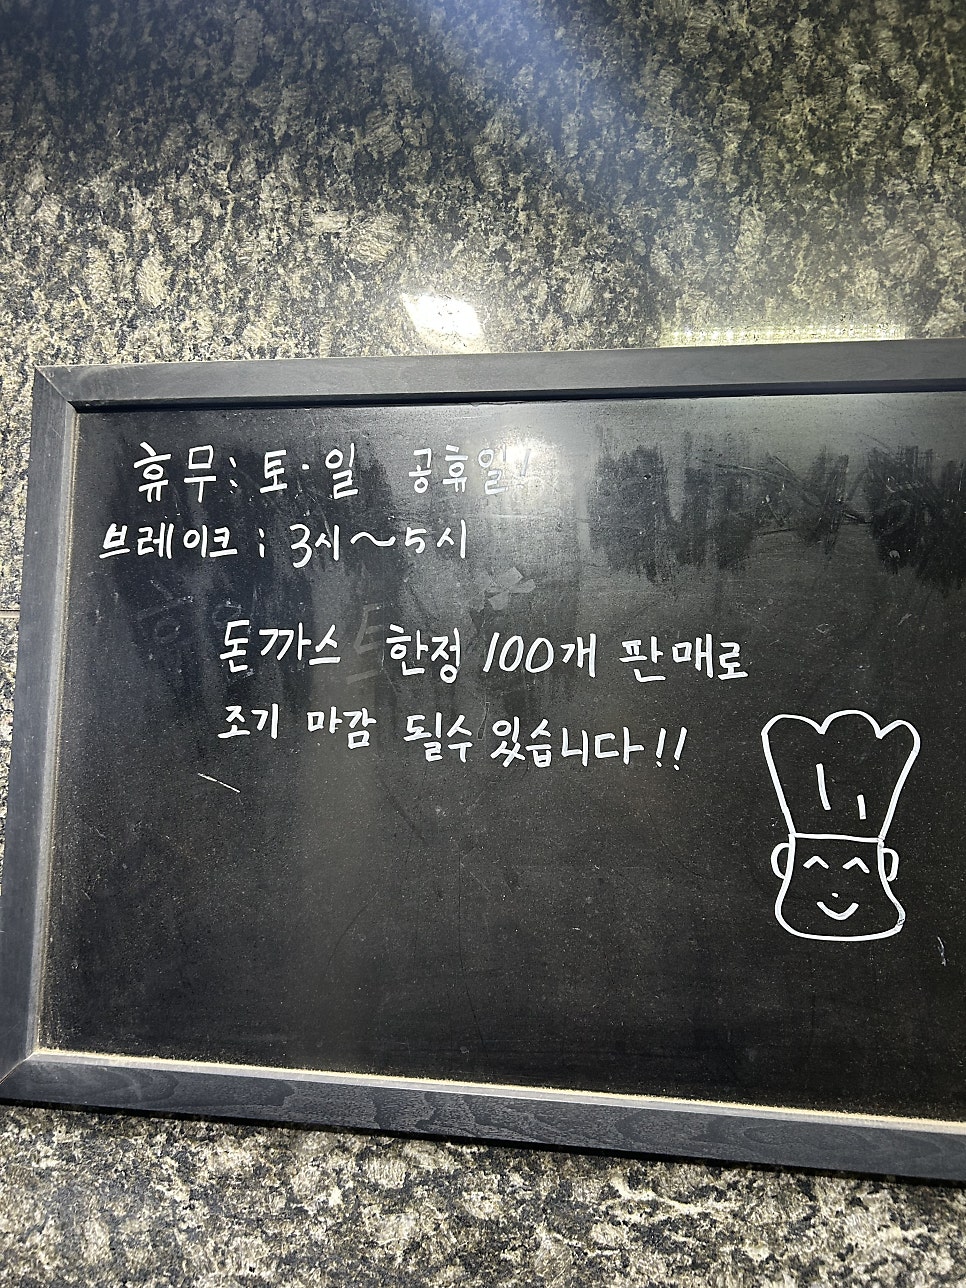 휴무: 토·일 공휴일!
브레이크 : 3시~5시
돈까스 한정 100개 판매로
조기 마감 될수 있습니다!!